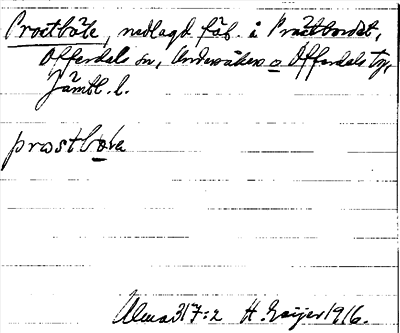 Prostböle, nedlagd fäb. i Prästbordet,
Offerdals sn, Undersåkers o Offerdals tg,
Jämtl. l.
prostbola
Uma 317:2 H. Geijer 1916.